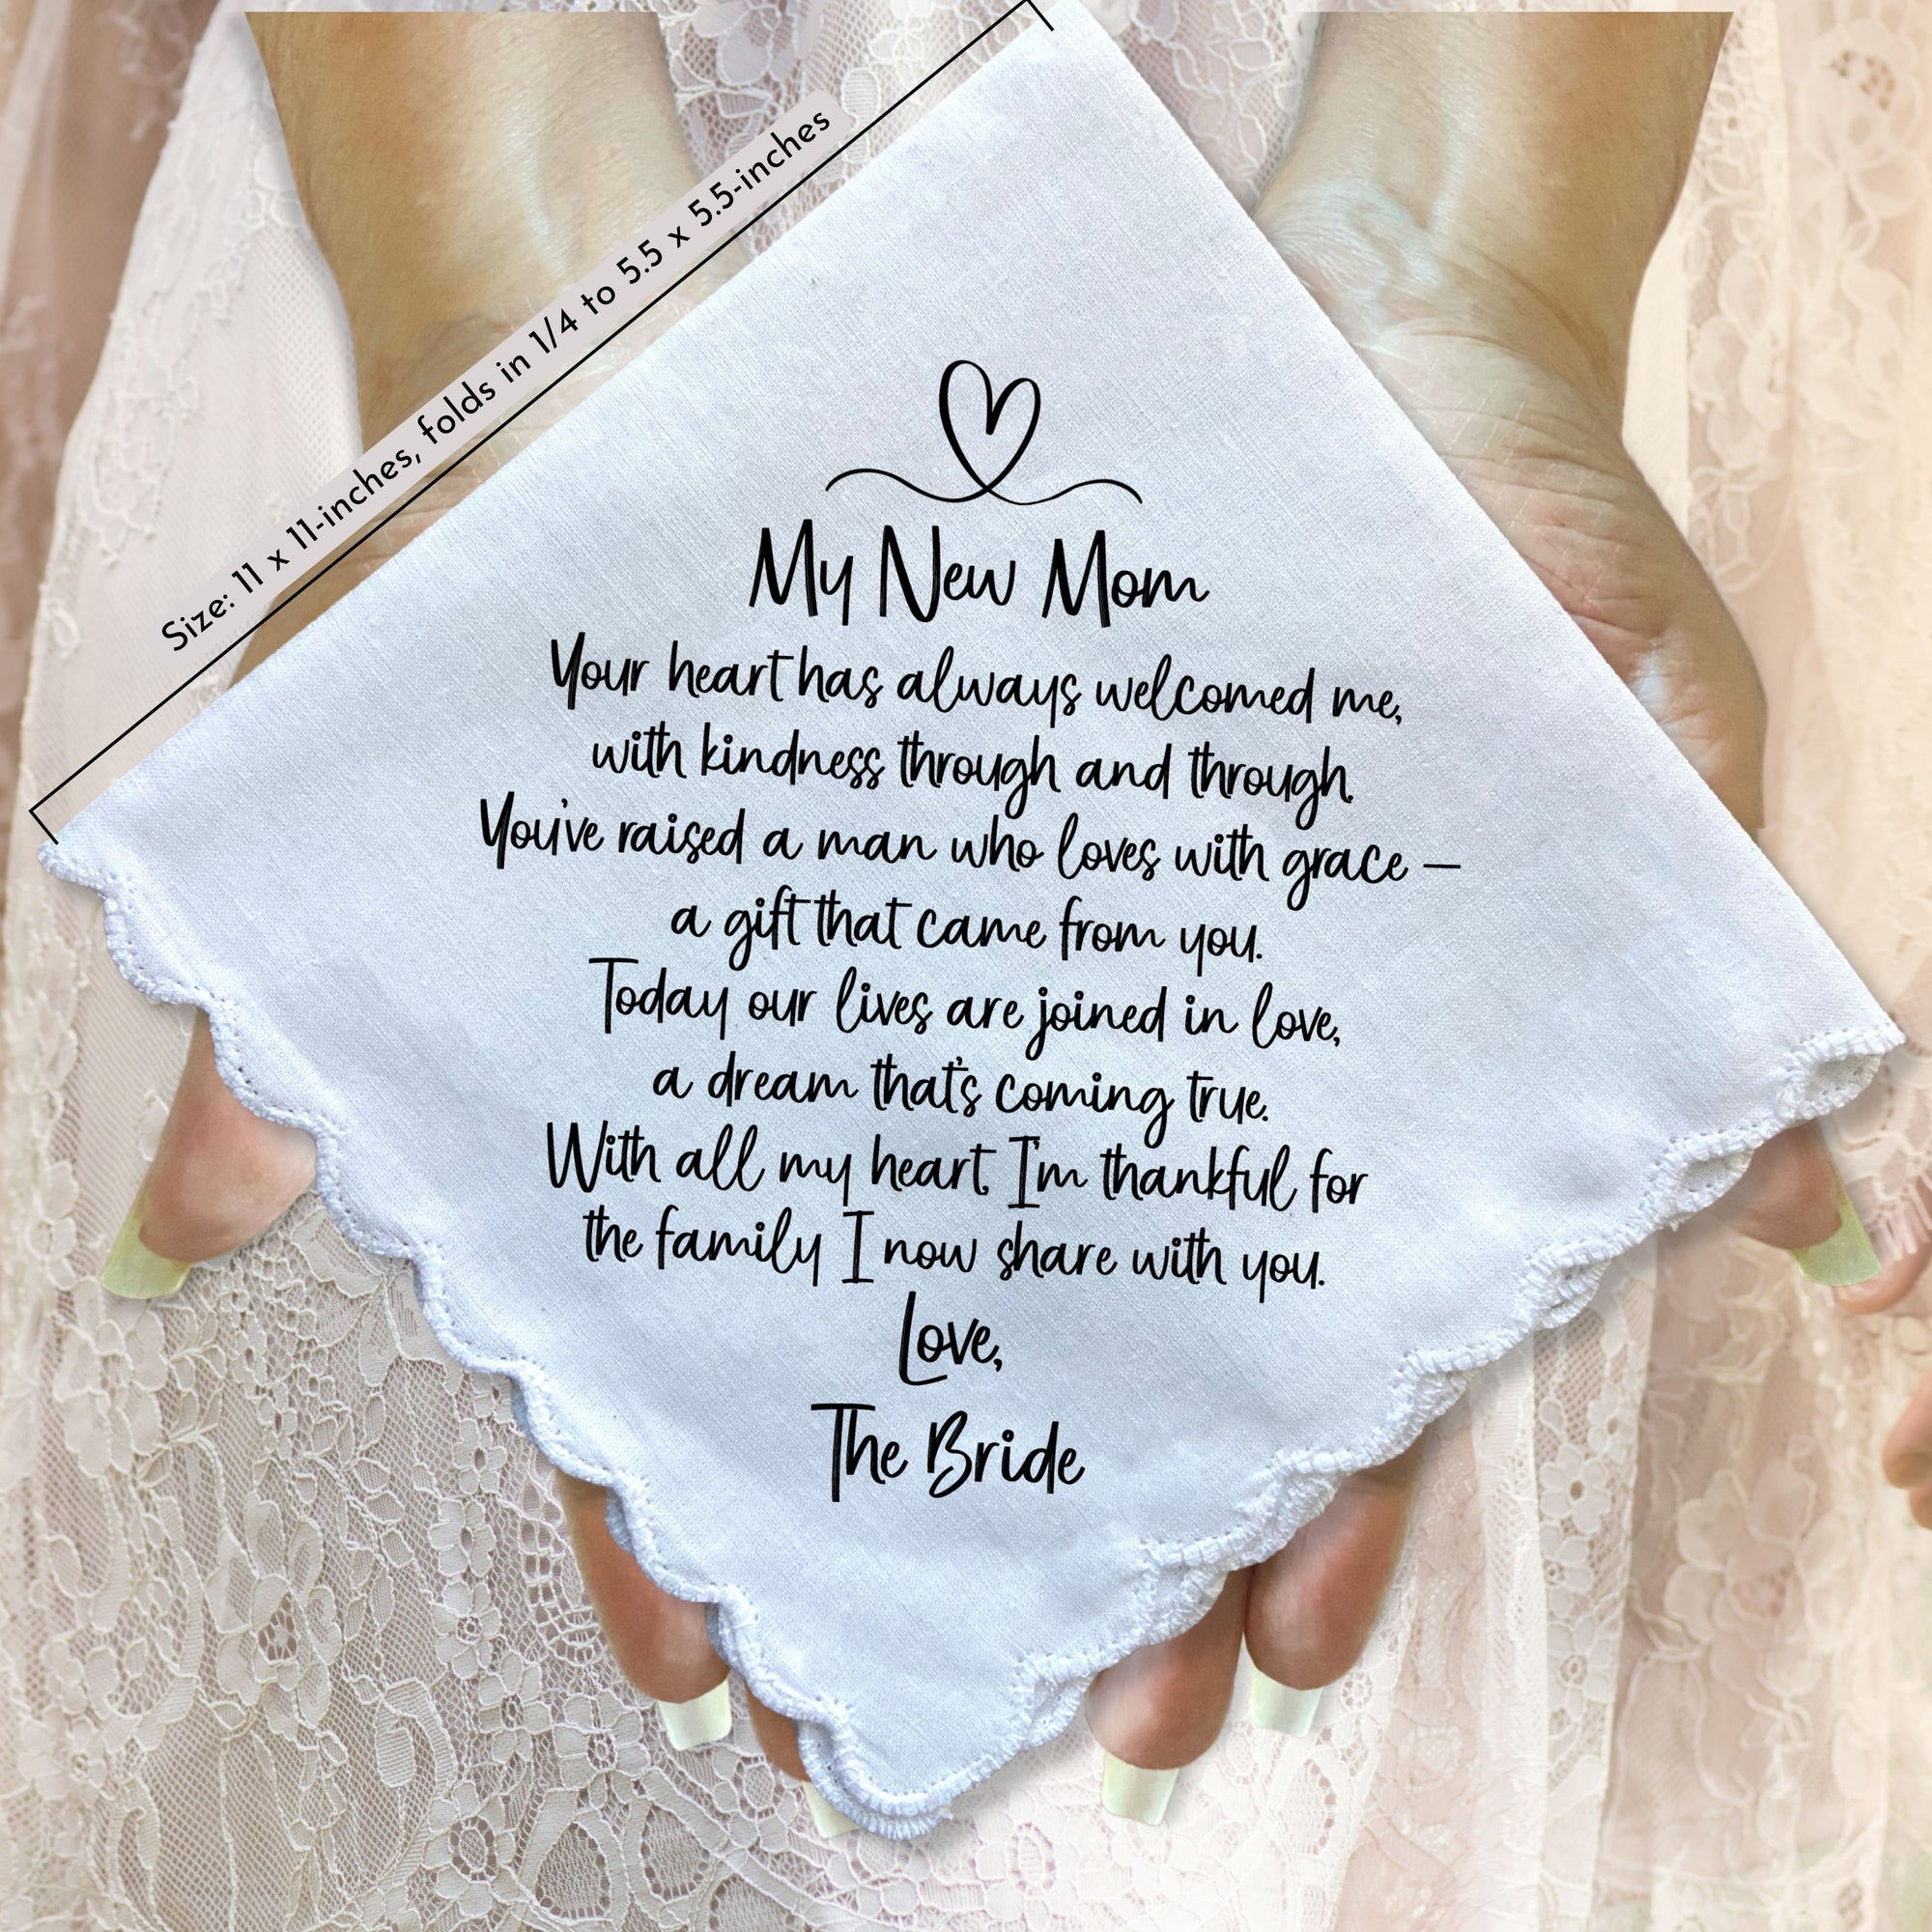 Size: 11 x 11-inches, folds in 1/4 to 5.5 x 5.5-inches
My New Mom
Your heart has always welcomed me,
with kindness through and through.
You've raised a man who loves with grace —
a gift that came from you.
Today our lives are joined in love,
a dream that's coming true.
With all my heart, I'm thankful for
the family I now share with you.
Love,
The Bride